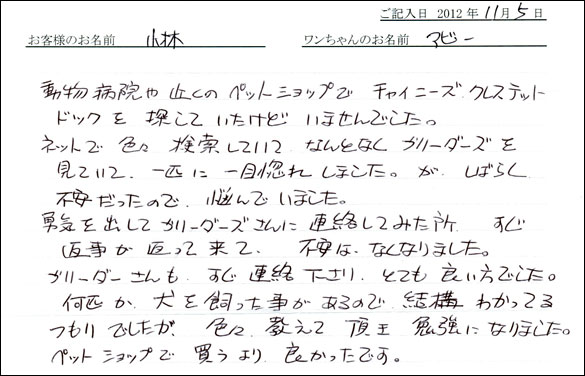 ご記入日 2012年11月5日
お客様のお名前 小林 ワンちゃんのお名前 マビー
動物病院や近くのペットショップで チャイニーズ.クレステット
ドックを探していたけど いませんでした。
ネットで色々検索していて、なんとなくブリーダーズを
見ていて、一匹に一目惚れしました。が、しばらく
不安だったので、悩んでいました。
勇気を出してブリーダーズさんに連絡してみた所、すぐ
返事が返って来て、不安は、なくなりました。
ブリーダーさんも、すぐ連絡下さり、とても良い方でした。
何匹か、犬を飼った事があるので、結構わかってる
つもりでしたが、色々、教えて頂き 勉強になりました。
ペットショップで買うより、良かったです。